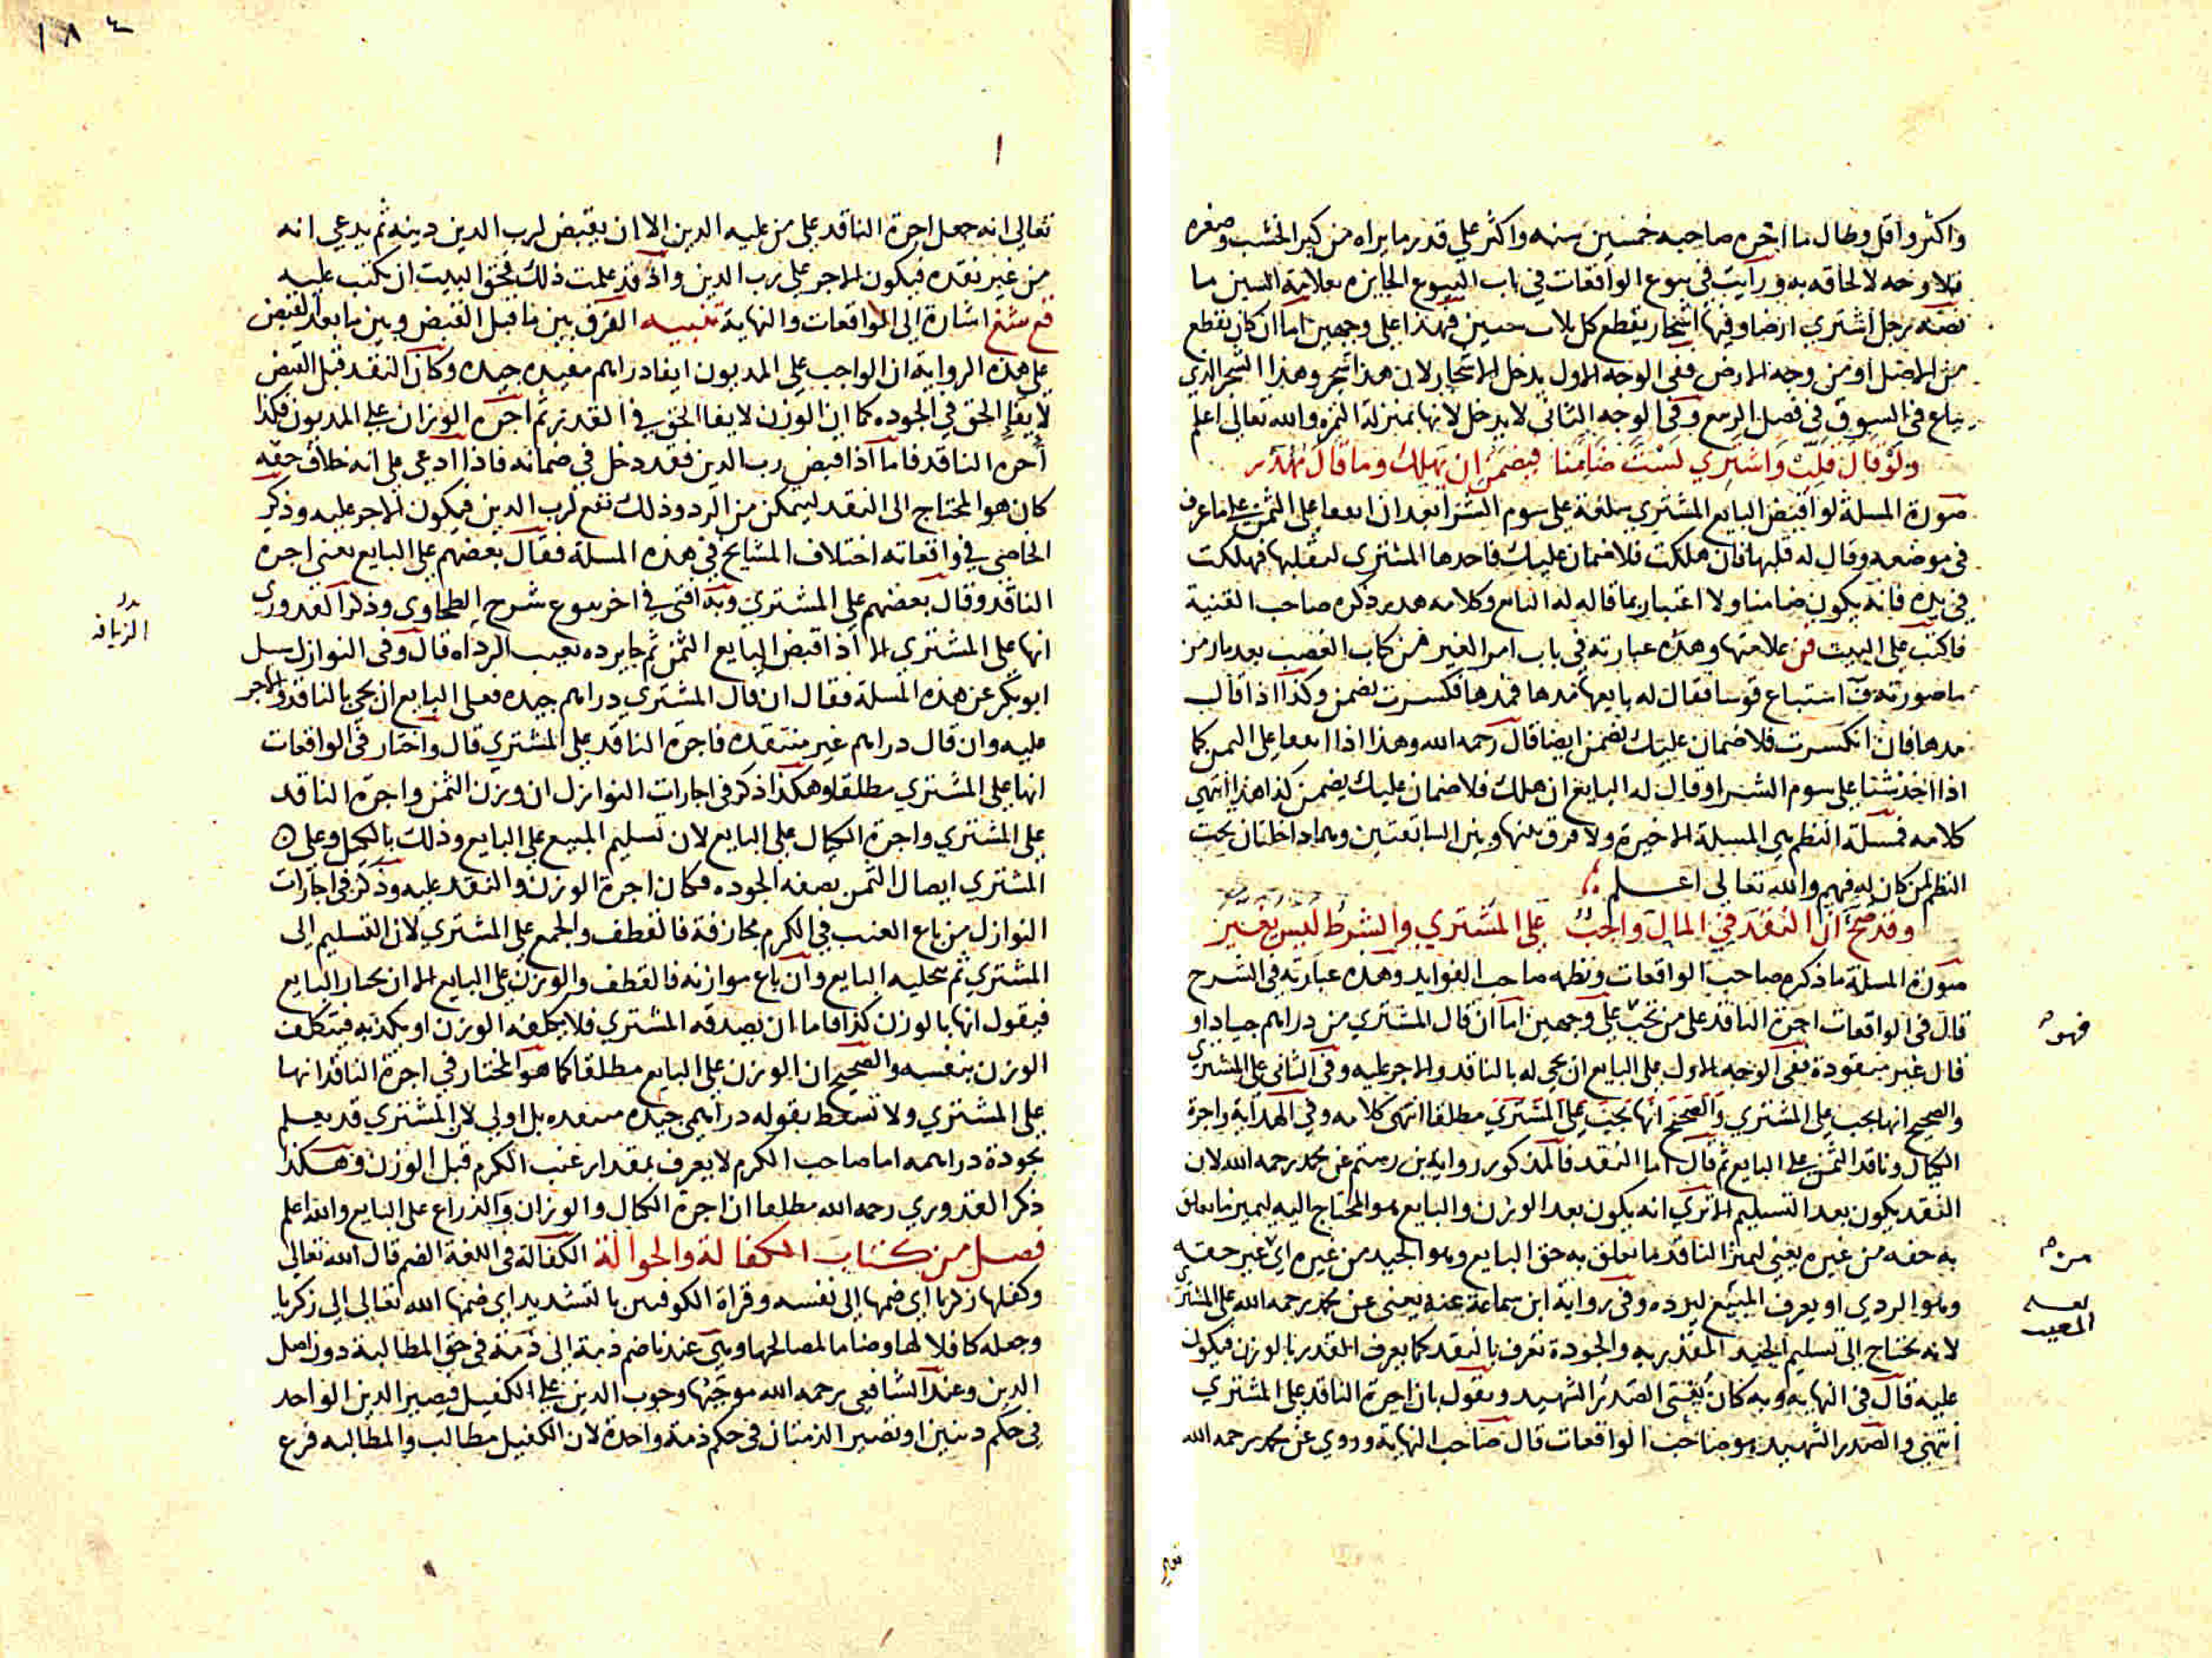 واكثر واقل وطال ما اجره صاحبه خمسين سنه واكثر علي قدر ما يراه من كبر الخشب وصغره
فلا وجه لالحاقه به ورايت في بيوع الواقعات في باب البيوع الجايزه بعلامة السين ما
نصه رجل اشتري ارضا وفيها اشجار يقطع كل ثلاث سنين فهذا علي وجهين اما ان كان يقطع
من الاصل او من وجه الارض ففي الوجه الاول يدخل الاشجار لان هذا شجر وهذا الشجر الذي
يباع في السوق في فصل الربيع وفي الوجه الثاني لا يدخل لانها بمنزلة الثمره والله تعالي اعلم
ولو قال قلبت واشتري لست ضامنا فيضمن ان يهلك وما قال يهدر
صورة المسلة لو اقبض البايع المشتري سلعة علي سوم الشرا بعد ان اتفقا علي الثمن علي ما عرف
في موضعه وقال له قلبها فان هلكت فلا ضمان عليك فاخدها المشتري ليقلبها فهلكت
في يده فانه يكون ضامنا ولا اعتبار بما قاله له البايع وكلامه هدر ذكره صاحب القنية
فاكتب علي البيت قن علامتها وهذه عبارته في باب امر الغير من كتاب الغصب بعد ما رمز
ما صورته استباع قوسا فقال له بايعها مدها فمدها فكسرت يضمن وكذا اذا قال
مدها فان انكسرت فلا ضمان عليك يضمن ايضا قال رحمه الله وهذا اذا اتفقا علي الثمن كما
اذا اخذ شيا علي سوم الشرا وقال له البايع ان هلك فلا ضمان عليك يضمن كذا هذا انتهي
كلامه فمسلة النظم هي المسيلة الاخيرة ولا فرق بينها وبين السابقتين وهما داخلتان تحت
النظم لمن كان له فهم والله تعالي اعلم
وقد صح ان النقد في المال واجب علي المشتري والشرط ليس يغير
صورة المسلة ما ذكره صاحب الواقعات ونظمه صاحب الفوايد وهذه عبارته في الشرح
قال في الواقعات اجرة الناقد علي من تجب علي وجهين اما ان قال المشتري من دراهم جياد او
قال غير منقودة ففي الوجه الاول علي البايع ان يجي له بالناقد والاجر عليه وفي الثاني علي المشتري
والصحيح انها تجب علي المشتري والصحيح انها تجب علي المشتري مطلقا انتهي كلامه وفي الهداية واجرة
الكيال وناقد الثمن علي البايع ثم قال اما النقد فالمذكور رواية بن رستم عن محمد رحمه الله لان
النقد يكون بعد التسليم الا تري انه يكون بعد الوزن والبايع هو المحتاج اليه ليميز ما يعلق
به حقه من غيره يعني ليميز الناقد ما تعلق به حق البايع وهو الجيد من غيره اي غير حقه
وهو الردي او يعرف المبيع ليرده وفي رواية ابن سماعة عنه يعني عن محمد رحمه الله علي المشتري
لانه يحتاج الي تسليم الجيد المقدر به والجودة تعرف بالنقد كما يعرف القدر بالوزن فيكون
عليه قال في النهايه وبه كان يفتي الصدر الشهيد ويقول بان اجرة الناقد علي المشتري
انتهي والصدر الشهيد هو صاحب الواقعات قال صاحب النهاية وروي عن محمد رحمه الله
فهو
من
المعيب
١٨٤
تعالي انه جعل اجرة الناقد علي من عليه الدين الا ان يقبض لرب الدين دينه ثم يدعي انه
من غير نقده فيكون الاجر علي رب الدين واذ قد علمت ذلك فحق البيت ان يكتب عليه
قع شغ اشارة الي الواقعات والنهاية تنبيه الفرق بين ما قبل القبض وبين ما بعد القبض
علي هذه الرواية ان الواجب علي المديون ايفا دراهم مقيده جيده وكان النقد قبل القبض
لايفا الحق في الجوده كما ان الوزن لايفا الحق في القدر ثم اجره الوزان علي المديون فكذا
اجره الناقد فاما اذا قبض رب الدين فقد دخل في ضمانه فاذا ادعي علي انه خلاف حقه
كان هو المحتاج الي النقد ليتمكن من الرد وذلك نفع لرب الدين فيكون الاجر عليه وذكر
الخاصي في واقعاته اختلاف المشايخ في هذه المسلة فقال بعضهم علي البايع يعني اجرة
الناقد وقال بعضهم علي المشتري وبه افتي في اخر بيوع شرح الطحاوي وذكر القدوري
انها علي المشتري الا اذا قبض البايع الثمن ثم جا يرده بعيب الرداه قال وفي النوازل سيل
ابو بكر عن هذه المسلة فقال ان قال المشتري دراهم جيده فعلي البايع ان يجي بالناقد والاجر
عليه وان قال دراهم غير منتقده فاجرة الناقد علي المشتري قال واختار في الواقعات
انها علي المشتري مطلقا وهكذا ذكر في اجارات النوازل ان وزن الثمن واجرة الناقد
علي المشتري واجرة الكيال علي البايع لان تسليم المبيع علي البايع وذلك بالكيل وعلي
المشتري ايصال الثمن بصفه الجوده فكان اجرة الوزن والنقد عليه وذكر في اجارات
النوازل من باع العنب في الكرم مجازفة فالقطف والجمع علي المشتري لان التسليم الي
المشتري ثم بتخليه البايع وان باع موازنه فالقطف والوزن علي البايع الا ان يختار البايع
فيقول انها بالوزن كذا فاما ان يصدقه المشتري فلا يكلفه الوزن او يكذبه فيتكلف
الوزن بنفسه والصحيح ان الوزن علي البايع مطلقا كما هو المختار في اجرة الناقد انها
علي المشتري ولا تسقط بقوله دراهمي جيده منتقده بل اولي لان المشتري قد يعلم
بجودة دراهمه اما صاحب الكرم لا يعرف بمقدار عنب الكرم قبل الوزن وهكذا
ذكر القدوري رحمه الله مطلقا ان اجرة الكيال والوزان والذراع علي البايع والله اعلم
فصل من كتاب الكفالة والحوالة الكفالة في اللغة الضم قال الله تعالي
وكفلها زكريا اي ضمها الي نفسه وقراة الكوفيين بالتشديد اي ضمها الله تعالي الي زكريا
وجعله كافلا لها وضامنا لمصالحها وهي عندنا ضم ذمة الي ذمة في حق المطالبة دون اصل
الدين وعند الشافعي رحمه الله موجبها وجوب الدين علي الكفيل فيصير الدين الواحد
في حكم دينين او تصير الذمتان في حكم ذمة واحدة لان الكفيل مطالب والمطالبه فرع
الزيافه